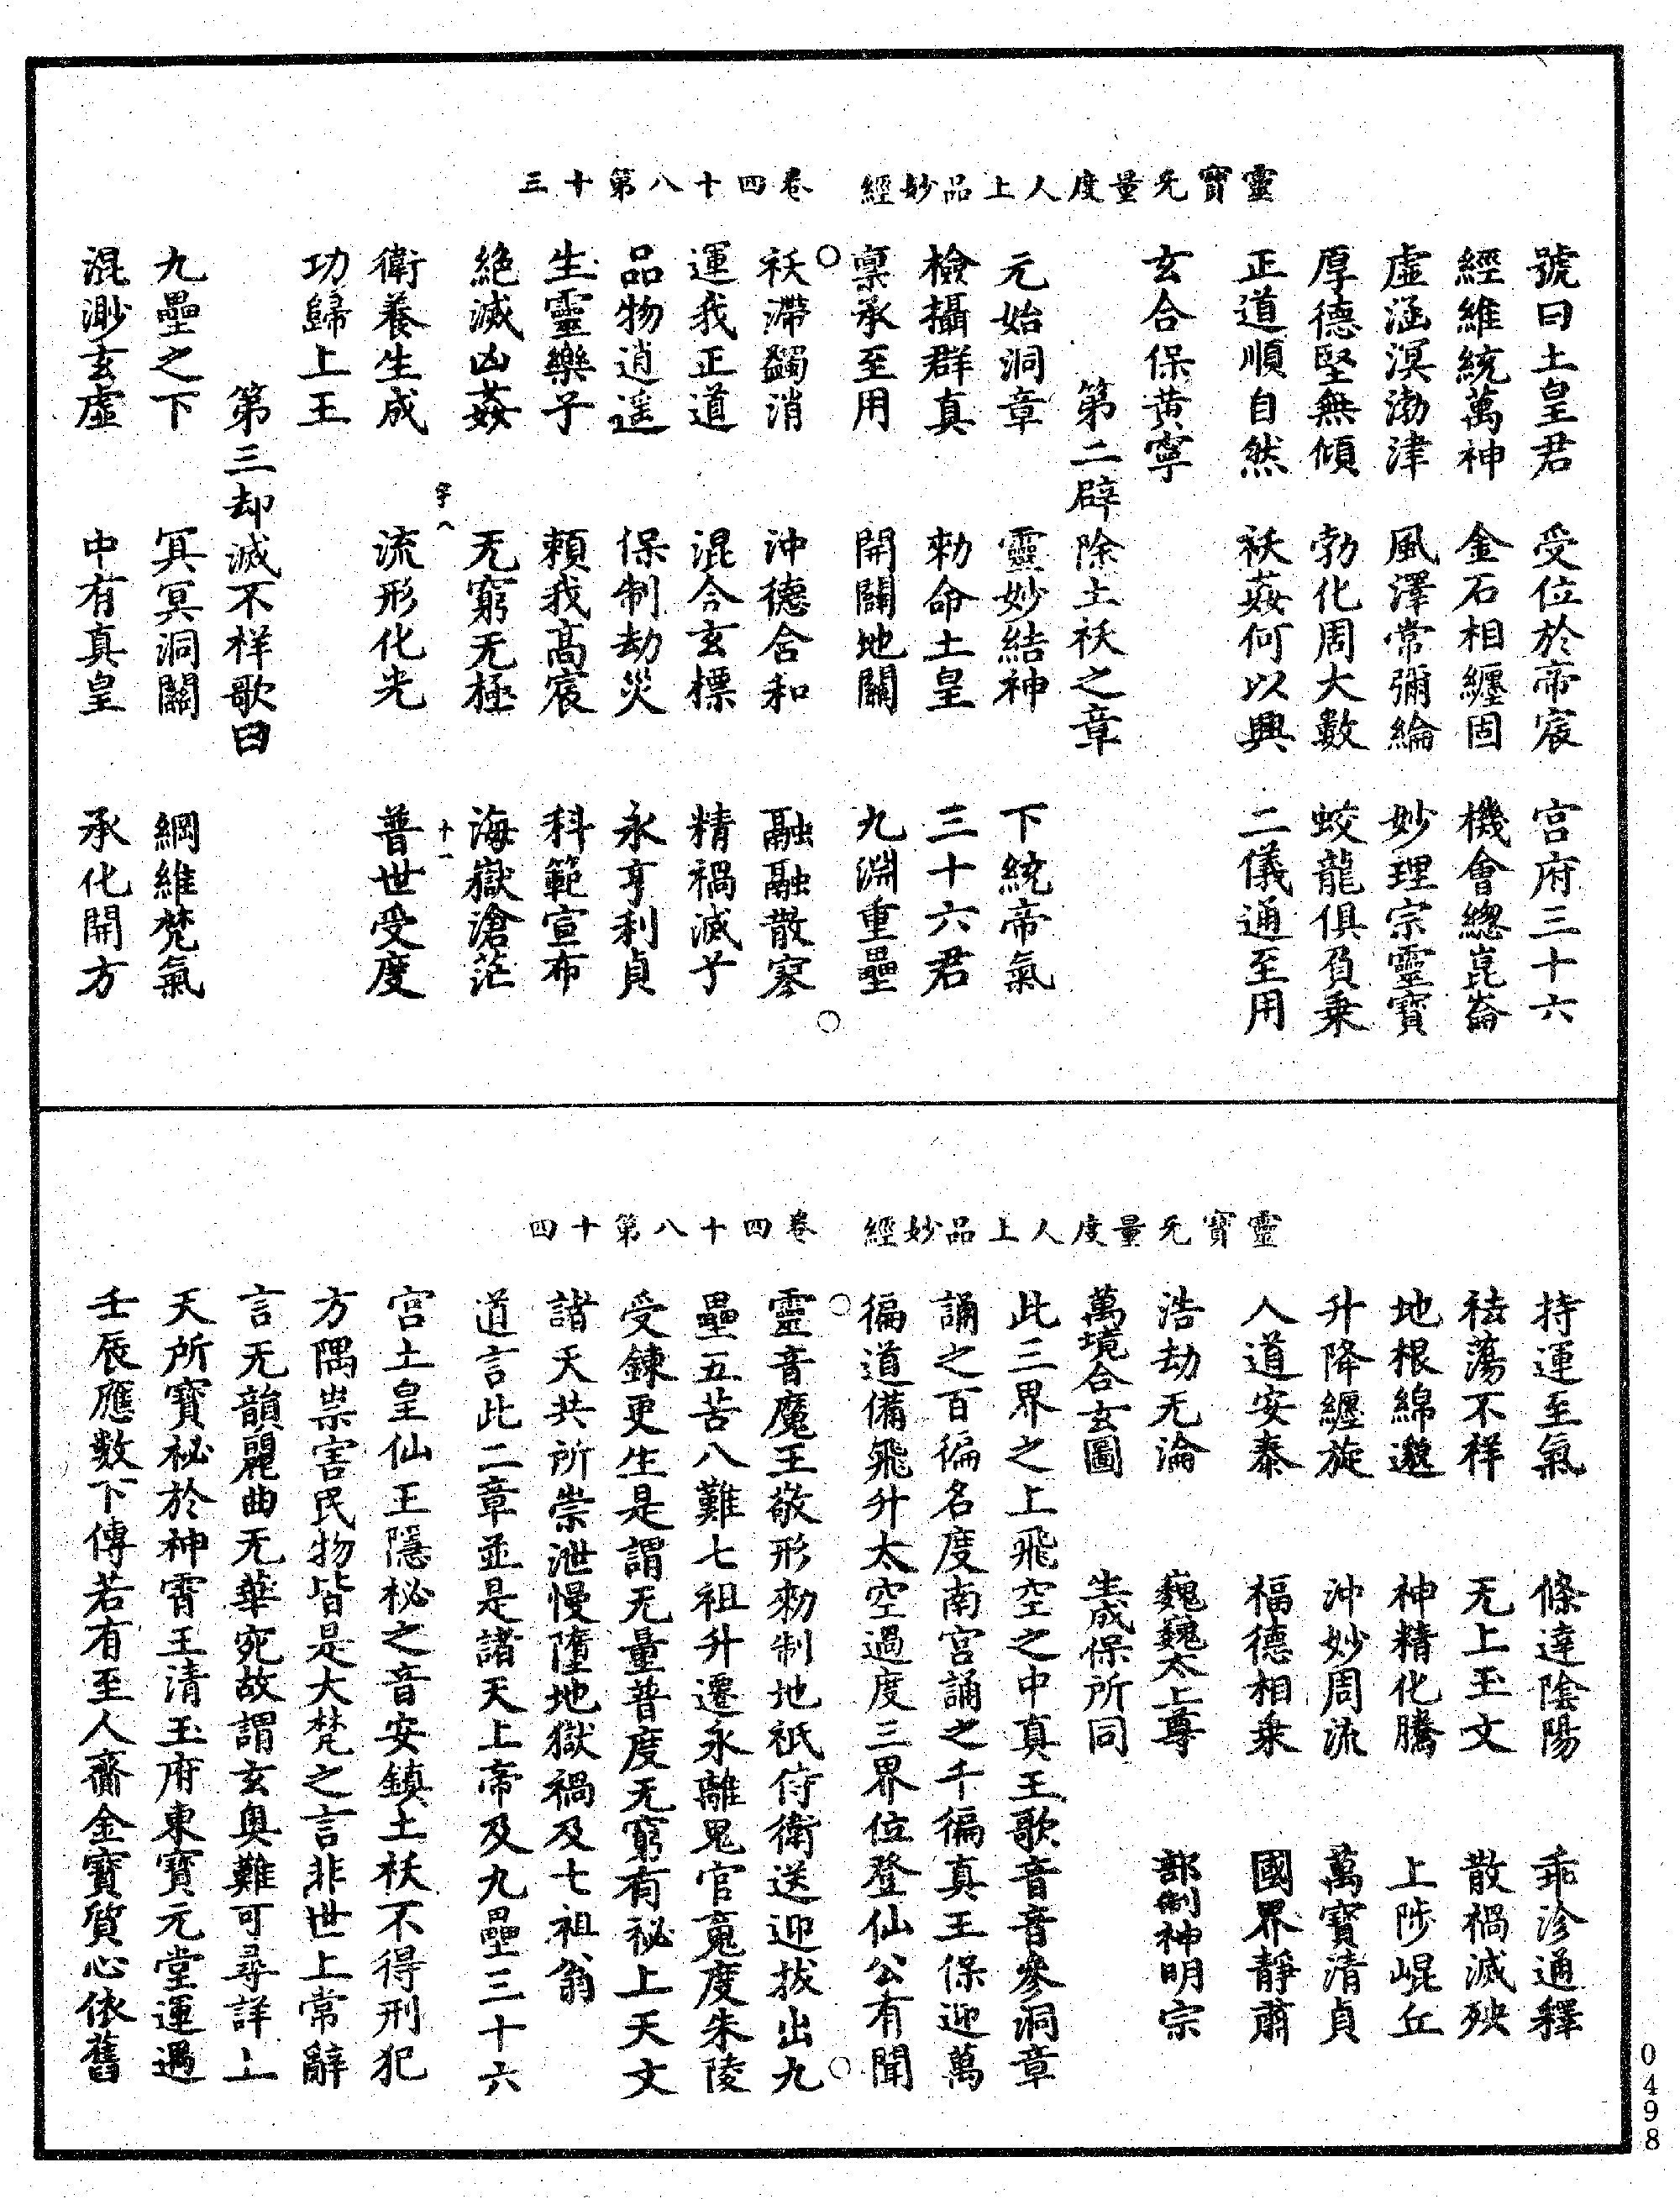 靈寶无量度人上品妙經　卷四十八第十三
號曰土皇君　受位於帝宸　宮府三十六
經維統萬神　金石相纏固　機會總崑崙
虛涵溟渤津　風澤常彌綸　妙理宗靈寶
厚德堅無傾　勃化周大數　蛟龍俱負乘
正道順自然　祅姦何以興　二儀通至用
玄合保黃寧
第二辟除土祅之章
元始洞章　靈妙結神　下統帝氣
檢攝群真　勑命土皇　三十六君
稟承至用　開闢地關　九淵重壘
祅滯蠲消　沖德合和　融融散寥
運我正道　混合玄標　精禍滅兮
品物逍遥　保制劫災　永亨利貞
生靈樂兮　賴我高宸　科範宣布
絕滅凶姦　无窮无極　海嶽滄茫
字八　十一
衛養生成　流形化光　普世受度
功歸上王
第三却滅不祥歌曰
九壘之下　冥冥洞關　綱維梵氣
混渺玄虛　中有真皇　承化開方
靈寶无量度人上品妙經　卷四十八第十四
持運至氣　條達陰陽　乖沴通釋
祛蕩不祥　无上玉文　散禍滅殃
地根綿邈　神精化騰　上陟崐丘
升降纏旋　沖妙周流　萬寶清貞
人道安泰　福德相乘　國界靜肅
浩劫无淪　巍巍太上尊　部制神明宗
萬境合玄圖　生成保所同
此三界之上飛空之中真王歌音音參洞章
誦之百徧名度南宮誦之千徧真王保迎萬
徧道備飛升太空過度三界位登仙公有聞
靈音魔王敬形勑制地祇侍衛送迎拔出九
壘五苦八難七祖升遷永離鬼官䰟度朱陵
受鍊更生是謂无量普度无窮有祕上天文
諸天共所崇泄慢墮地獄禍及七祖翁
道言此二章並是諸天上帝及九壘三十六
宮土皇仙王隱祕之音安鎮土祅不得刑犯
方隅祟害民物皆是大梵之言非世上常辭
言无韻麗曲无華宛故謂玄奥難可尋詳上
天所寶祕於神霄王清玉府東寶元堂運遇
壬辰應数下傳若有至人齎金寶質心依舊
0498